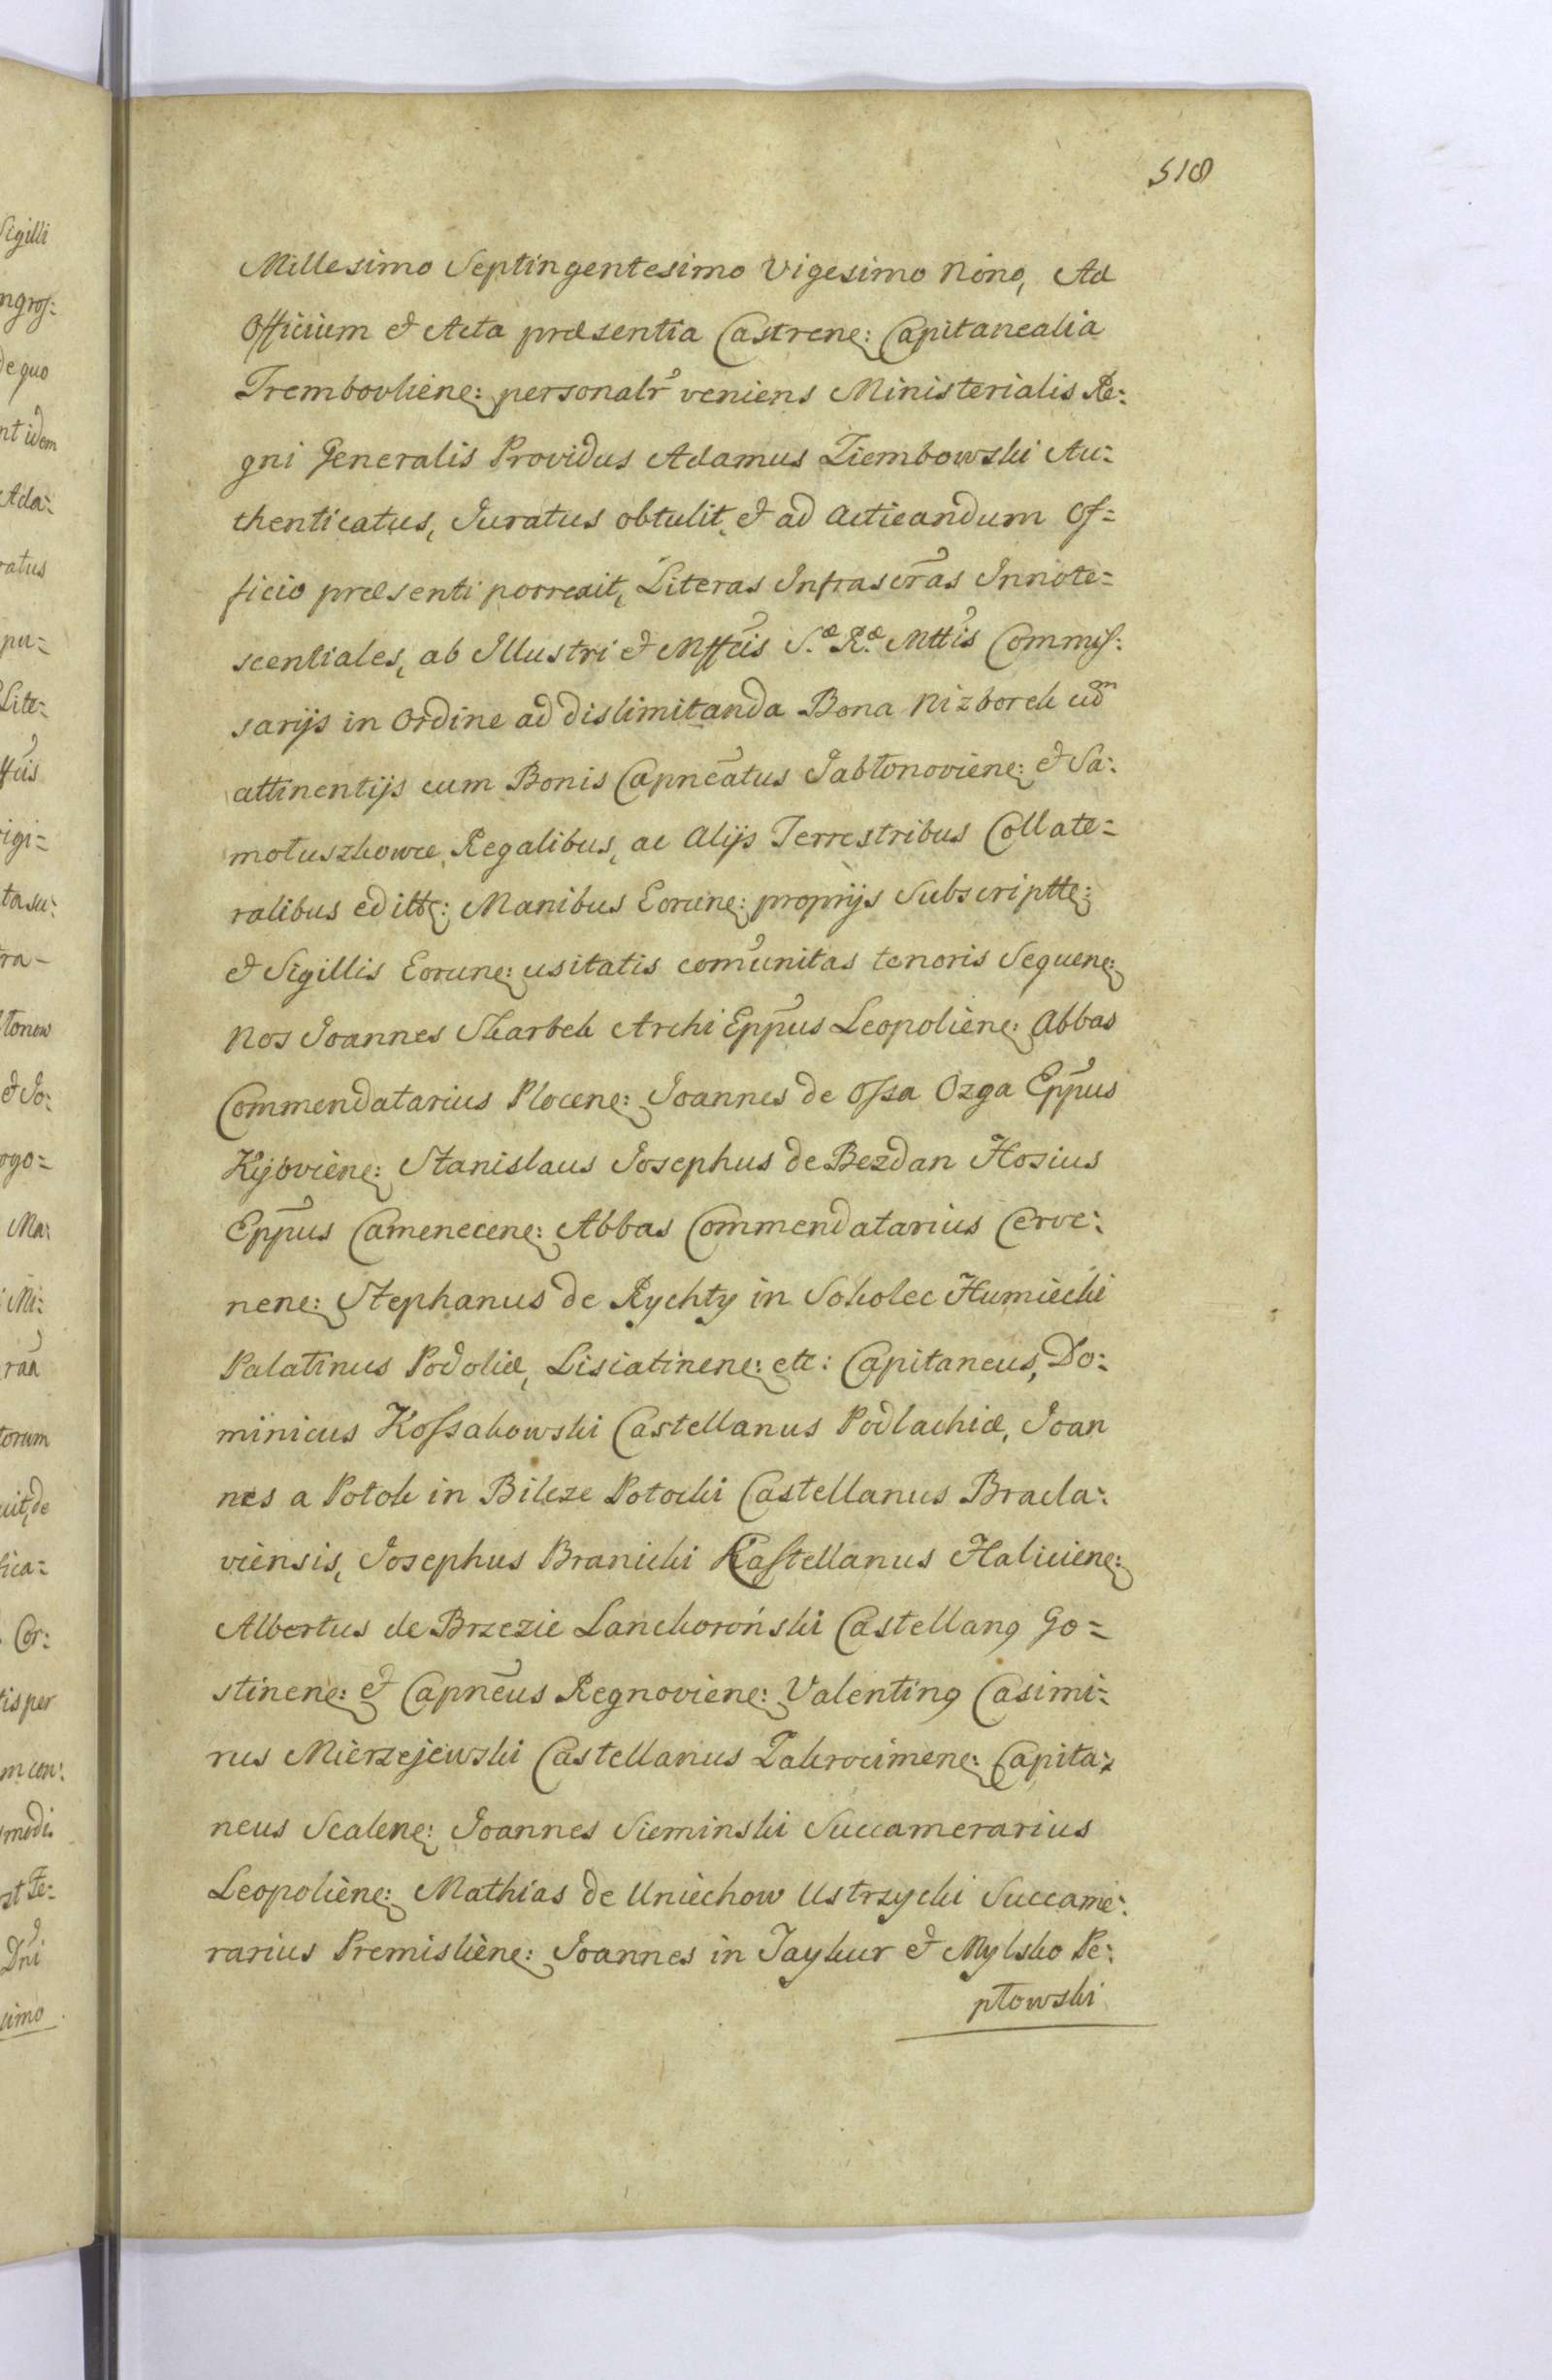 518
Millesimo Septingentesimo Vigesimo Nono, Ad
Officium & Acta præsentia Castrene: Capitanealia
Trembovliene: personalr veniens Ministerialis Re:
gni Generalis Providus Adamus Ziembowski Au:
thenticatus, Juratus obtulit, & ad acticandum Of=
ficio præsenti porrexit, Literas Infrascras Innote=
scentiales, ab Illustri & Mffcis S.æ R.æ Mttis Commis:
sarijs in Ordine ad dislimitanda Bona Nizborek cum
attinentijs cum Bonis Capneatus Jabłonoviene: & Sa:
mołuszkowce Regalibus, ac alijs Terrestribus Collate=
ralibus editte: Manibus Eorune: proprijs Subscriptte:
& Sigillis Eorune: usitatis comunitas tenoris Sequene:
Nos Joannes Skarbek Archi Eppus Leopoliene: Abbas
Commendatarius Plocene: Joannes de Ossa Ozga Eppus
Kijoviene: Stanislaus Josephus de Bezdan Hosius
Eppus Camenecene: Abbas Commendatarius Cerve:
nene: Stephanus de Rychty in Sokolec Humiecki
Palatinus Podoliæ, Lisiatinene: ett: Capitaneus, Do:
minicus Kossakowski Castellanus Podlachiæ, Joan
nes a Potok in Bilcze Potocki Castellanus Bracla:
viensis, Josephus Branicki Castellanus Haliciene:
Albertus de Brzezie Lanckoroński Castellang Go=
stinene: & Capneus Regnoviene: Valenting Casimi=
rus Mierzejewski Castellanus Zakrocimene: Capita:
neus Scalene: Joannes Sieminski Succamerarius
Leopoliene: Mathias de Uniechow Ustrzycki Succame:
rarius Premisliene: Joannes in Taykur & Mylsko Pe:
płowski